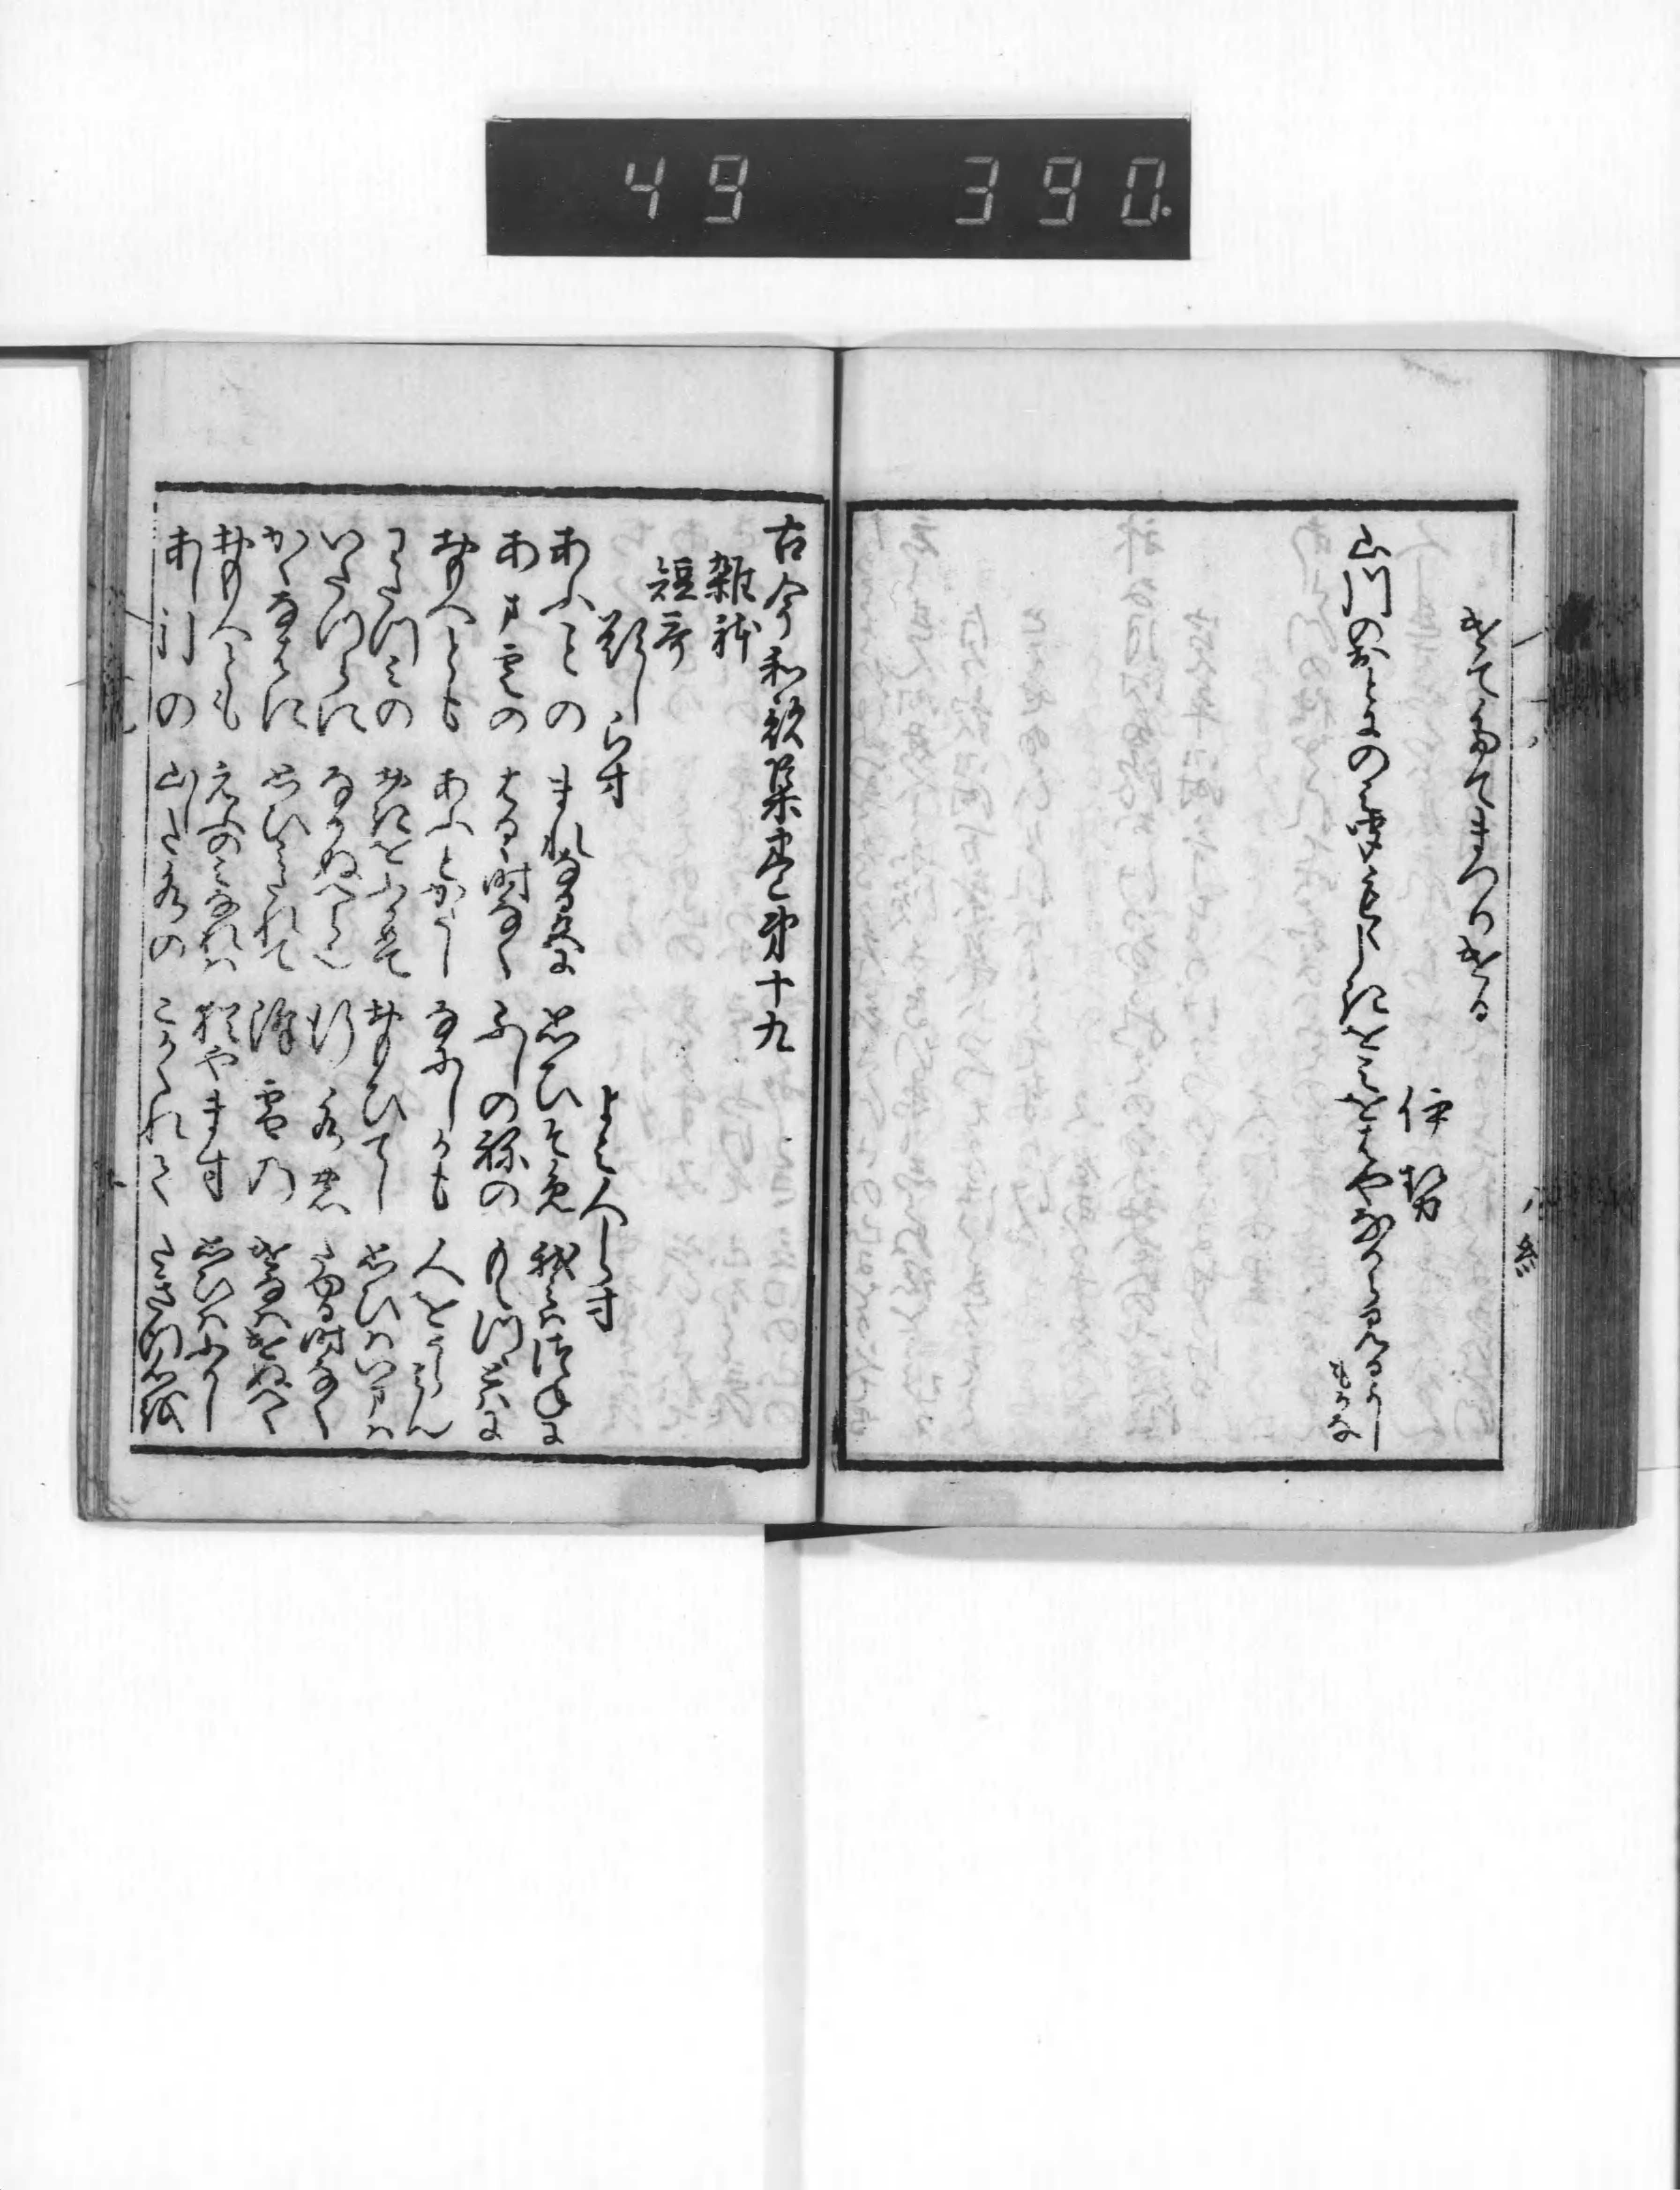 49 390.
かきてたてまつりける
伊勢
山川のおとにのみきくもゝしきを身をはやなからみるよし
もかな
古今和歌集巻第十九
雑躰
短哥
題しらす よみ人しらす
あふことの まれなる色に 思ひそめ 我身は徒ねに
あま雲の はるゝ時なく ふしの禰の もえつゝとはに
おもへとも あふことかたし なにしかも 人をうらみん
わたつみの おきをふかめて おもひてし 思ひはいまは
いたつらに なりぬへらなり 行水の たゆる時なく
かくなはに 思ひみたれて 降雪の けなはけぬへく
おもへとも えふの身なれは 猶やます 思ひはふかし
あし引の 山した水の こかくれて たきつ心を